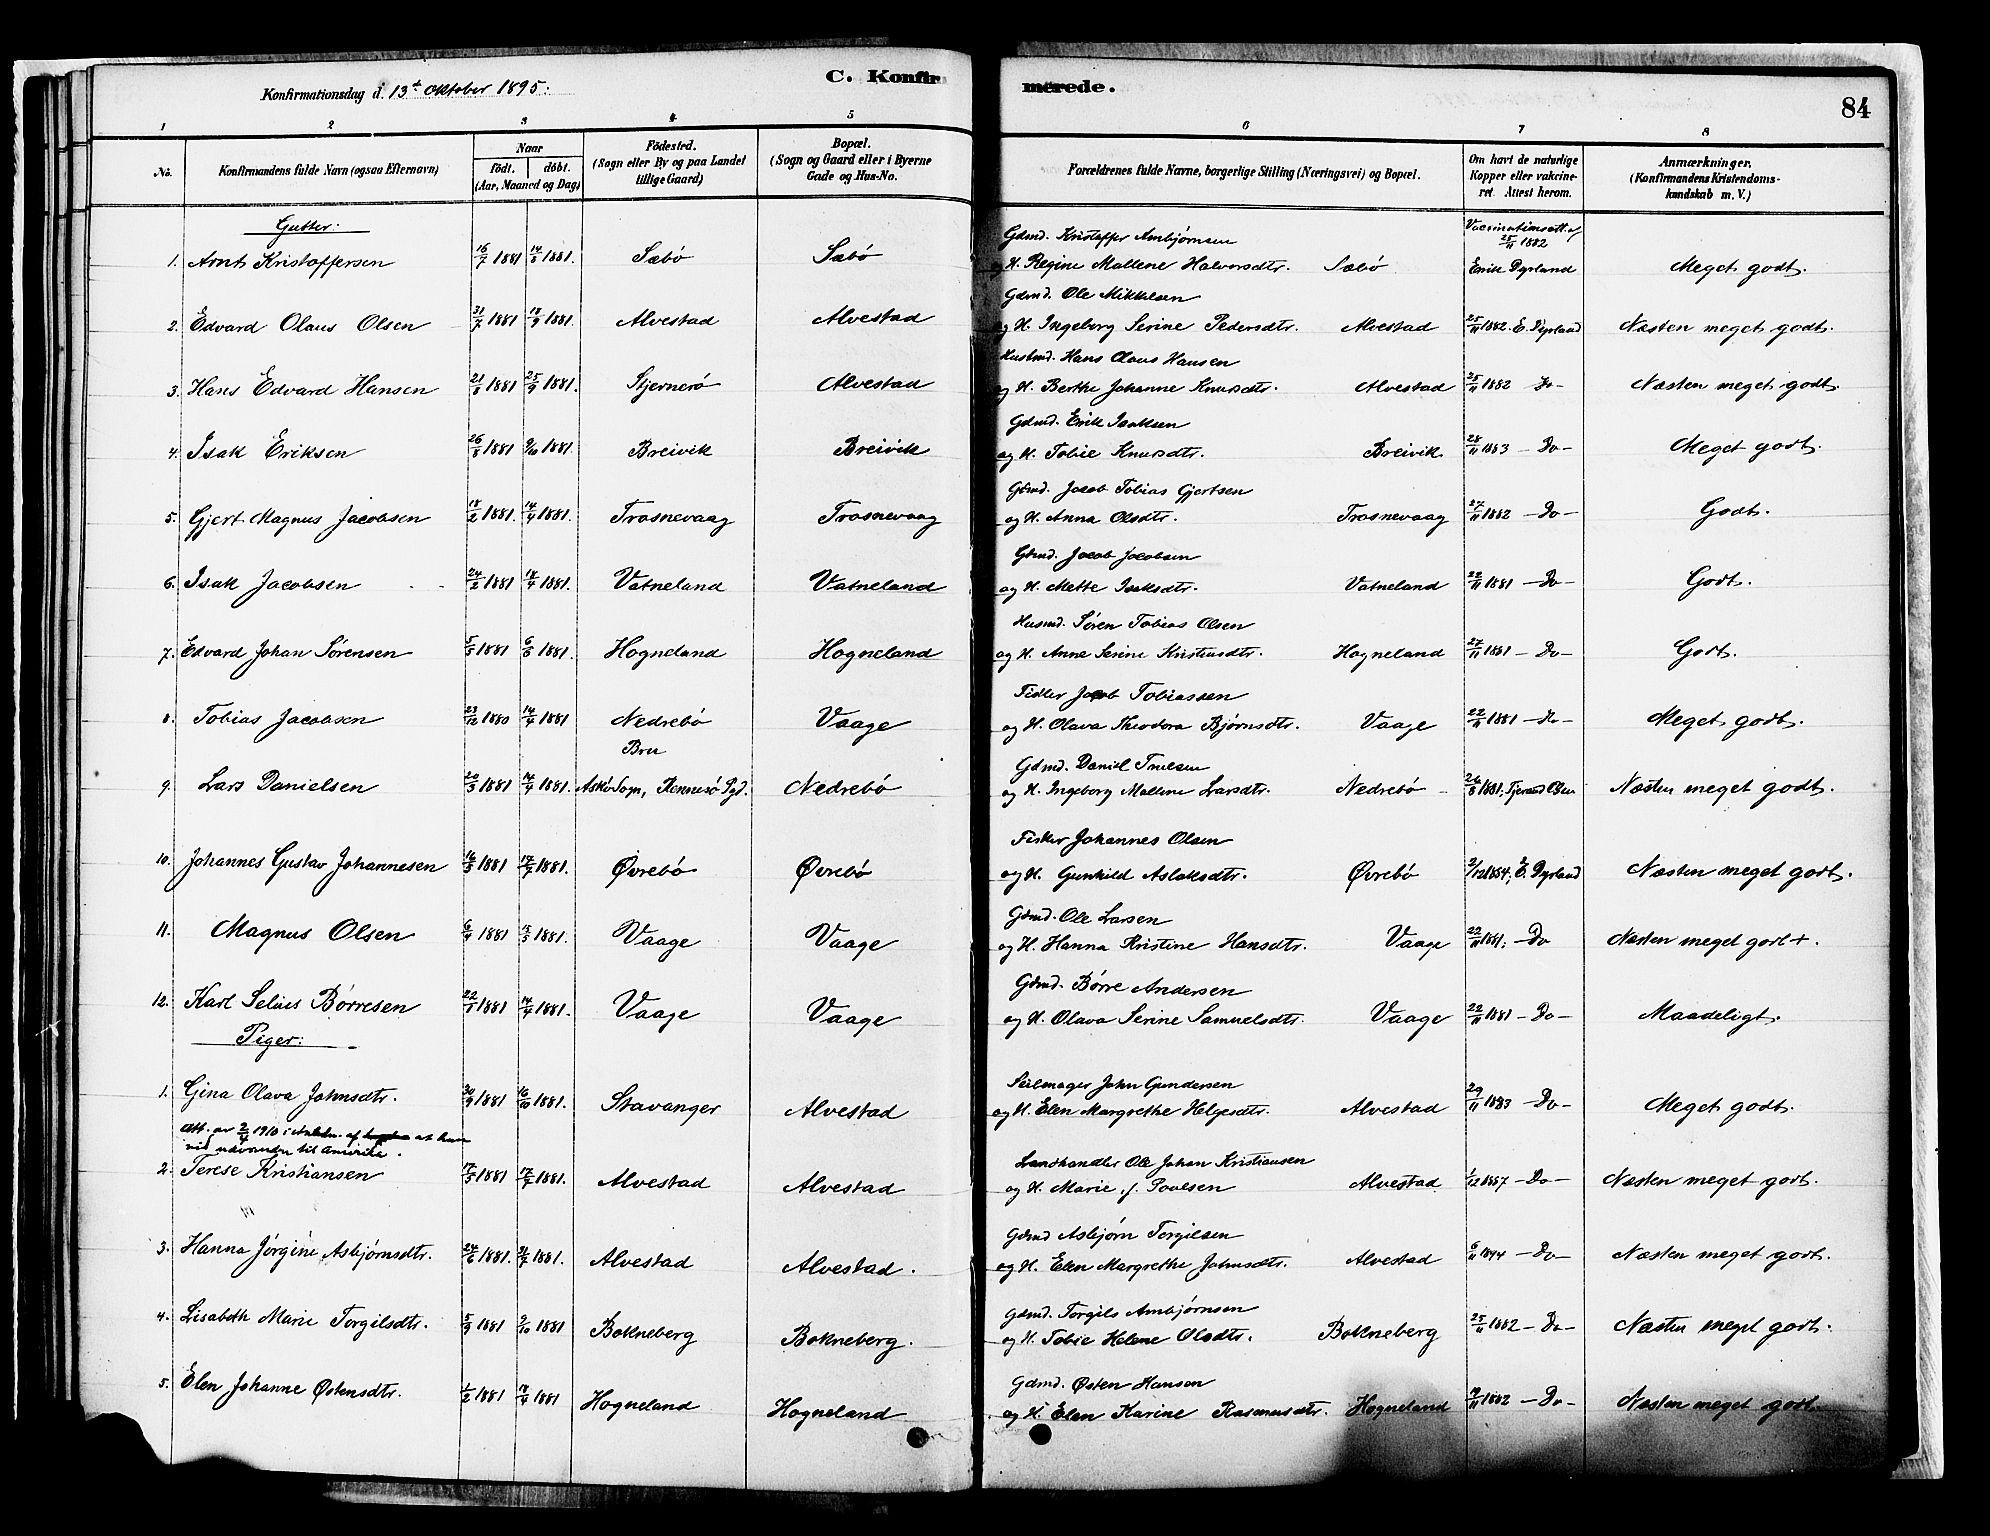 Konfirmationsdag d. 13de Oktober 1895.
C. Konfirmerede.
84
1 2 3 4 5 6 7 8
No. Konfirmandens fulde Navn (ogsaa Efternavn) Naar födt. döbt. (Aar, Maaned og Dag) Födested. (Sogn eller By og paa Landet tillige Gaard) Bopæl. (Sogn og Gaard eller i Byerne Gade og Hus-No. Forældrenes fulde Navne, borgerlige Stilling (Næringsvei) og Bopæl. Om havt de naturlige Kopper eller vakcineret. Attest herom. Anmærkninger. (Konfirmandens Kristendomskundskab m. V.)
Gutter:
Gdmd. Kristoffer Ambjørnsen Vaccinationsatt. af 25/11 1882
1. Arnt Kristoffersen 16/7 1881 14/8 1881. Sæbö Sæbö og H. Regine Mallene Halvorsdtr. Sæbö Erik Dyrland Meget godt.
Gdmd. Ole Mikkelsen
2. Edvard Olaus Olsen 31/7 1881 18/9 1881. Alvestad Alvestad og H. Ingeborg Serine Pedersdtr. Alvestad 25/11 1882. E. Dyrland Næsten meget godt.
Husmd. Hans Olaus Hansen
3. Hans Edvard Hansen 21/8 1881 25/9 1881. Stjernerö Alvestad og H. Berthe Johanne Knutsdtr. Alvestad 25/11 1882 – Do – Næsten meget godt.
Gdmd. Erik Isaksen
4. Isak Eriksen 26/8 1881 9/10 1881. Breivik Breivik og H. Tobie Knutsdtr. Breivik 28/11 1883 – Do – Meget godt.
Gdmd. Jacob Tobias Gjertsen
5. Gjert Magnus Jacobsen 18/2 1881. 14/4 1881. Trosnevaag Trosnevaag og H. Anna Olsdtr. Trosnevaag 27/11 1882 – Do – Godt.
Gdmd. Jacob Jacobsen
6. Isak Jacobsen 24/2 1881 18/4 1881. Vatneland Vatneland og H. Mette Isaksdtr. Vatneland 22/11 1881 – Do – Godt.
Husmd. Sören Tobias Olsen
7. Edvard Johan Sörensen 5/5 1881 6/6 1881. Hogneland Hogneland og H. Anne Serine Kristensdtr. Hogneland 27/11 1881 – Do – Godt.
Fisker Jacob Tobiassen
8. Tobias Jacobsen 23/12 1880 14/4 1881 Nedrebö Vaage og H. Olava Theodora Bjørnsdtr. Vaage 22/11 1881 – Do – Meget godt.
Bru Gdmd. Daniel Truesen
9. Lars Danielsen 20/3 1881 14/4 1881. Askö Sogn, Rennesö Pgd. Nedrebö og H. Ingeborg Mallene Larsdtr. Nedrebö 26/8 1881; Tjerand Olsen Næsten meget godt.
Fisker Johannes Olsen
10. Johannes Gustav Johannesen 16/5 1881 17/7 1881. Øvrebö Øvrebö og H. Gunhild Aslaksdtr. Øvrebö 2/12 1884; E. Dyrland Næsten meget godt.
Gdmd. Ole Larsen
11. Magnus Olsen 6/4 1881 15/5 1881. Vaage Vaage og H. Hanna Kristine Hansdtr. Vaage 22/11 1881; – Do Næsten meget godt +.
Gdmd. Börre Andersen
12. Karl Selius Börresen 22/1 1881 14/4 1881. Vaage Vaage og H. Olava Serine Samuelsdtr. Vaage 22/11 1881 – Do – Maadeligt.
Piger:
Seilmager John Gundersen
1. Gina Olava Johnsdtr. 30/9 1881 16/10 1881. Stavanger Alvestad og H. Elen Margrethe Helgesdtr. Alvestad 29/11 1883 – Do – Meget godt.
Att. av 2/4 1910 i Anledn. af at hun
vil udvandre til Amerika.
Landhandler Ole Johan Kristiansen
2. Terese Kristiansen 17/5 1881 17/7 1881. Alvestad Alvestad og H. Marie f. Poulsen Alvestad 1/12 1887 – Do – Næsten meget godt.
Gdmd Asbjørn Torgilsen
3. Hanna Jörgine Asbjørnsdtr. 24/6 1881. 31/7 1881. Alvestad Alvestad. og H. Elen Margrethe Johnsdtr. Alvestad 6/11 1894 – Do – Næsten meget godt.
Gdmd. Torgils Ambjørnsen
4. Lisabeth Marie Torgilsdtr. 5/9 1881 2/10 1881 Bokneberg Bokneberg. og H. Tobie Helene Olsdtr. Bokneberg 25/11 1882 – Do – Næsten meget godt.
Gdmd. Østen Hansen
5. Elen Johanne Østensdtr. 1/2 1881 18/4 1881 Hogneland Hogneland og H. Elen Karine Rasmusdtr. Hogneland 1882 – Do – Næsten meget godt.